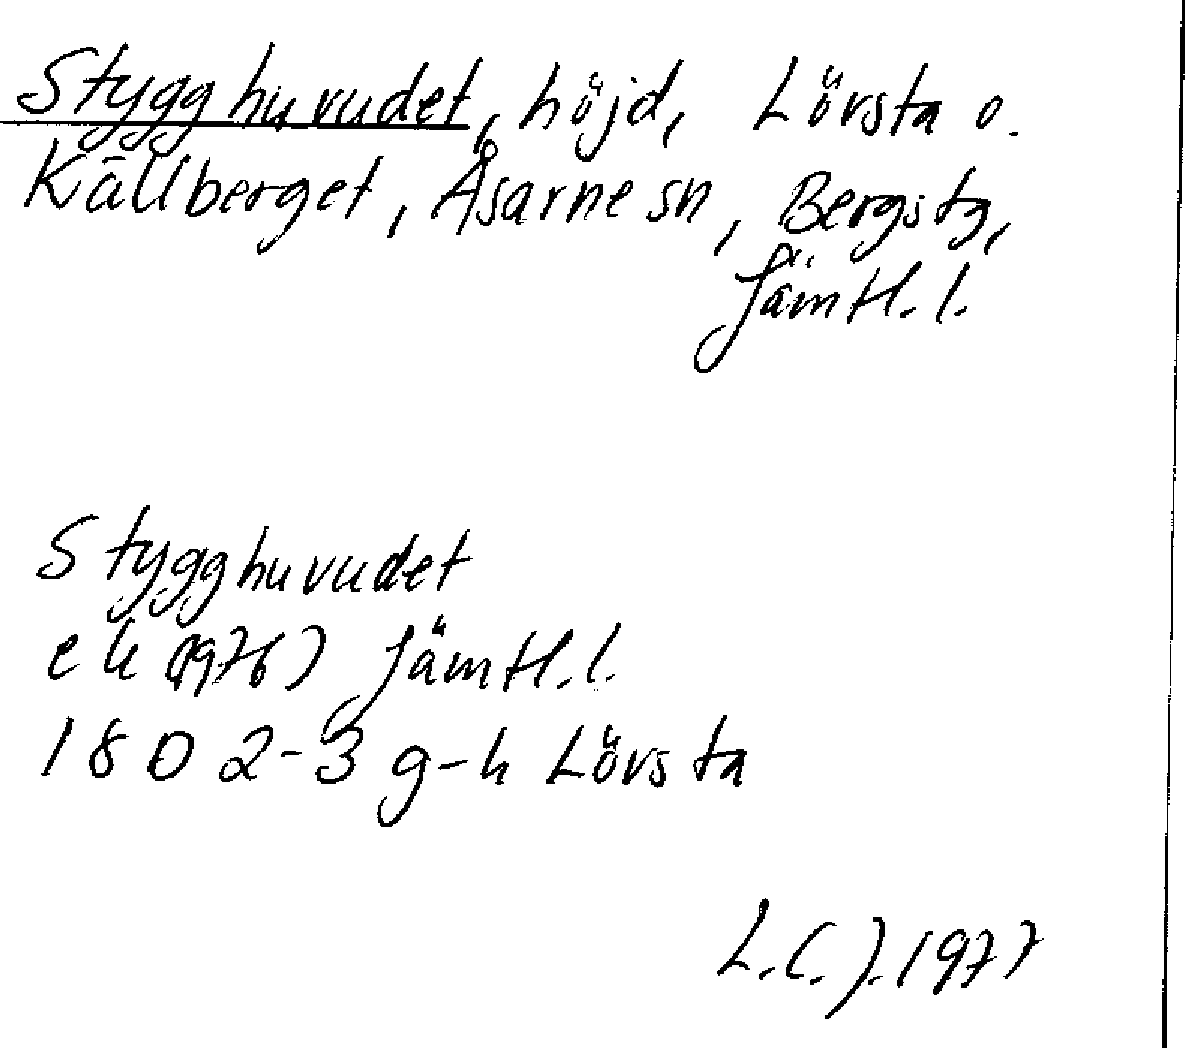 Stygghuvudet, höjd, Lövsta o.
Källberget, Åsarne sn, Bergs tg,
Jämtl. l.
Stygghuvudet
ek (1976) Jämtl. l.
18D 2-3 g-h Lövsta
L.C.J. 1977